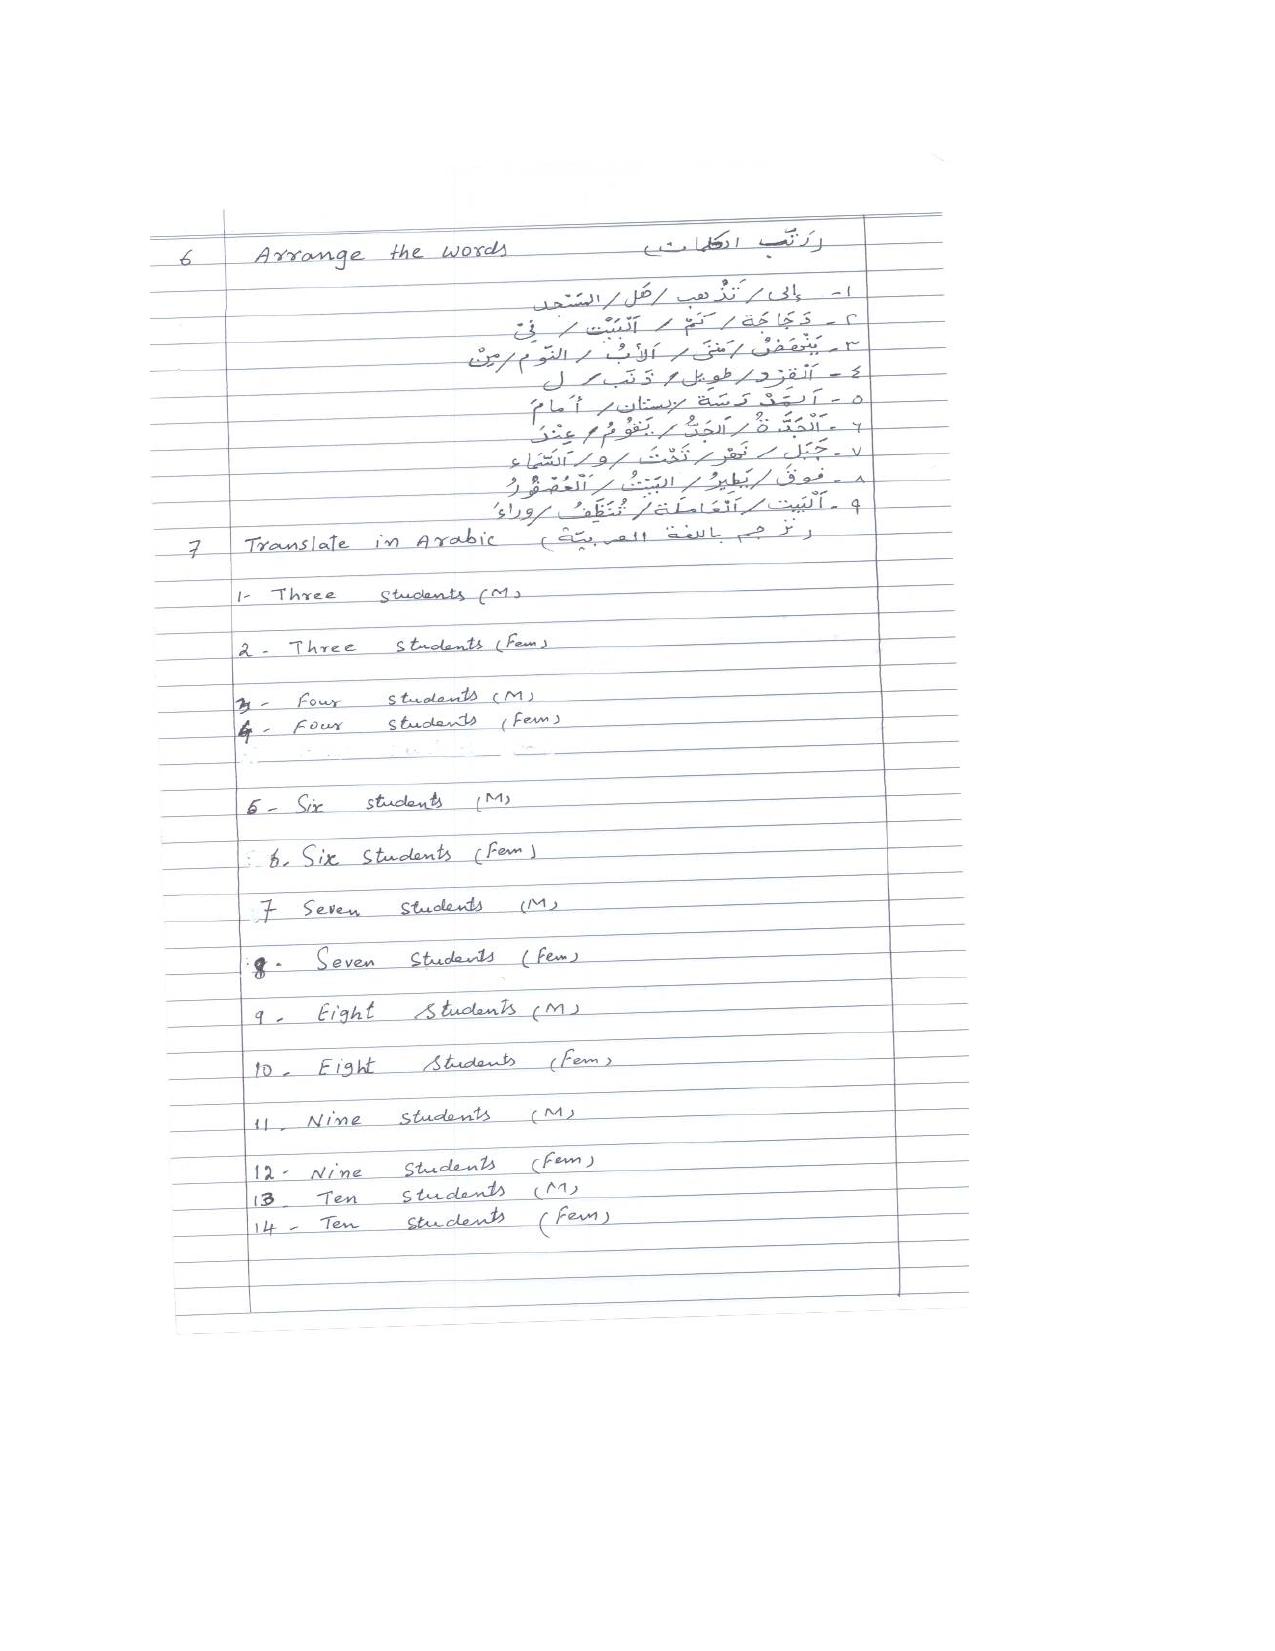 6 Arrange the words (رتّب الكلمات)
١- إلى / تَذْهب / هَل / المَسْجد
٢- دَجَاجَة / كَمْ / اَلْبَيْت / فِيْ
٣- يَنْهَضُ / مَتَى / اَلأَبُ / النّوم / مِنْ
٤- اَلْقِرْد / طويل / ذَنَب / ل
٥- اَلمَدْرَسَة / بستان / أَمامَ
٦- اَلْجَدَّةُ / اَلجَدُّ / يَقُوْمُ / عِنْدَ
٧- جَبَل / نَهْر / تَحْتَ / و / اَلسَّمَاء
٨- فوقَ / يَطِيرُ / البَيْتُ / اَلْعُصْفُوْرُ
٩- اَلْبَيت / اَلْعَامِلَة / تُنَظِّفُ / وراءَ
7 Translate in Arabic (ترجم باللغة العربيّة)
1- Three students (M)
2- Three students (Fem)
3- Four students (M)
4- Four students (Fem)
5- Six students (M)
6. Six students (Fem)
7 Seven students (M)
8- Seven students (Fem)
9- Eight students (M)
10- Eight students (Fem)
11. Nine students (M)
12- Nine students (Fem)
13 Ten students (M)
14- Ten students (Fem)